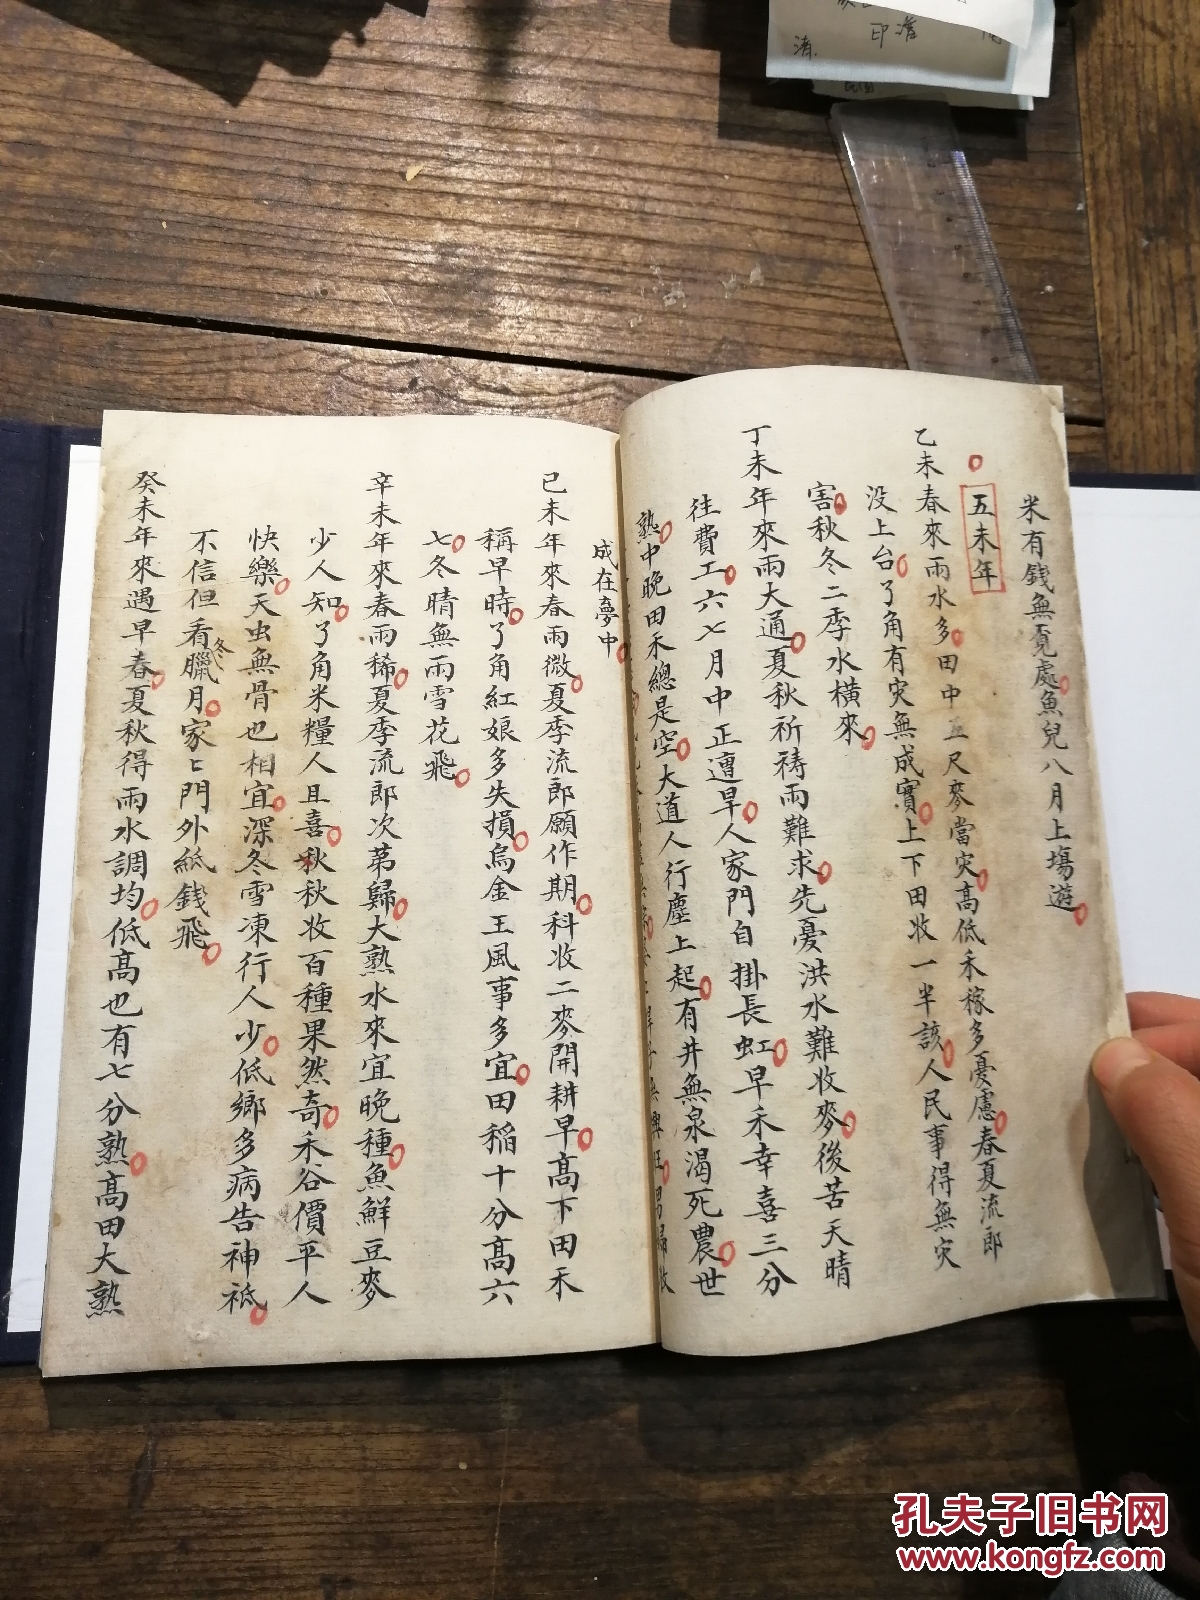 米有錢無覓處魚兒八月上塲遊
五未年
乙未春來雨水多田中五尺麥當灾高低禾稼多憂慮春夏流郎
没上台了角有灾無成實上下田收一半該人民事得無灾
害秋冬二季水橫來
丁未年來雨大通夏秋祈祷雨難求先憂洪水難收麥後苦天晴
往費工六七月中正遭旱人家門自掛長虹早禾幸喜三分
熟中晚田禾總是空大道人行塵上起有井無泉渴死農世
成在夢中
已未年來春雨微夏季流郎願作期科收二麥開耕早高下田禾
稱早時了角紅娘多失損烏金王風事多宜田稻十分高六
七冬晴無雨雪花飛
辛未年來春雨稀夏季流郎次苐歸大熟水來宜晚種魚鮮豆麥
少人知了角米糧人且喜秋秋收百種果然奇禾谷價平人
快樂天虫無骨也相宜深冬雪凍行人少低鄉多病告神祇
不信但看臘月家〻門外紙錢飛
冬
癸未年來遇早春夏秋得雨水調均低高也有七分熟高田大熟
印
清.
孔夫子旧书网
www.kongfz.com